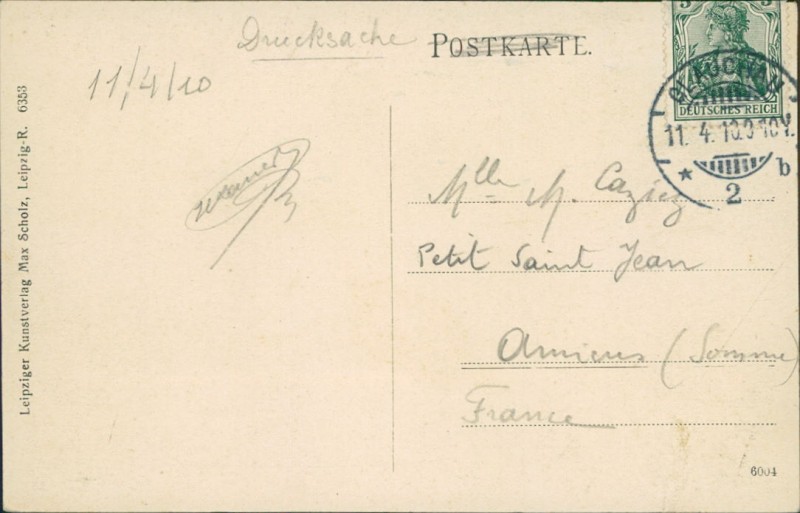 Drucksache POSTKARTE.
11/4/10
3 3
DEUTSCHES REICH
GLAUCHAU
11. 4. 10. 9-10 V.
* 2 b
Mlle M. Caziez
Petit Saint Jean
Amiens (Somme)
France
6004
Leipziger Kunstverlag Max Scholz, Leipzig-R. 6353